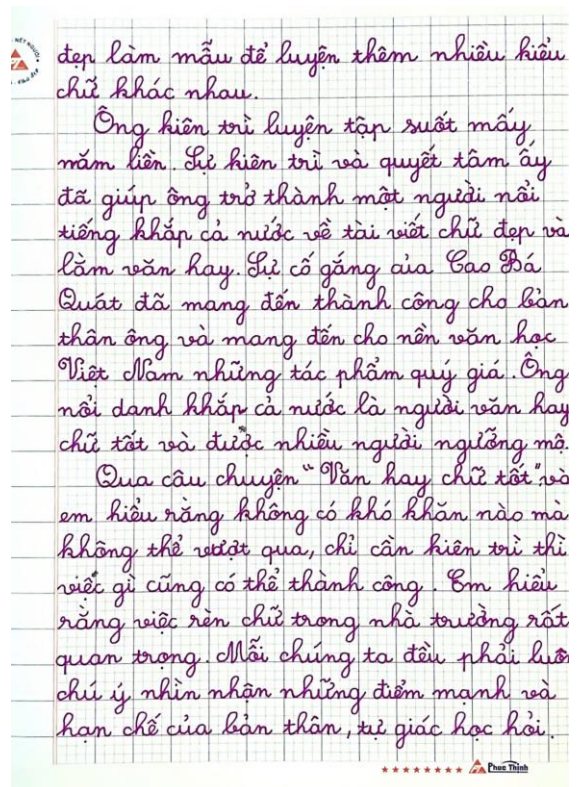 đẹp làm mẫu để luyện thêm nhiều kiểu
chữ khác nhau.
Ông kiên trì luyện tập suốt mấy
năm liền. Sự kiên trì và quyết tâm ấy
đã giúp ông trở thành một người nổi
tiếng khắp cả nước về tài viết chữ đẹp và
làm văn hay. Sự cố gắng của Cao Bá
Quát đã mang đến thành công cho bản
thân ông và mang đến cho nền văn học
Việt Nam những tác phẩm quý giá. Ông
nổi danh khắp cả nước là người văn hay
chữ tốt và được nhiều người ngưỡng mộ.
Qua câu chuyện "Văn hay chữ tốt" và
em hiểu rằng không có khó khăn nào mà
không thể vượt qua, chỉ cần kiên trì thì
việc gì cũng có thể thành công. Em hiểu
rằng việc rèn chữ trong nhà trường rất
quan trọng. Mỗi chúng ta đều phải luôn
chú ý nhìn nhận những điểm mạnh và
hạn chế của bản thân, tự giác học hỏi.
Phuc Thinh